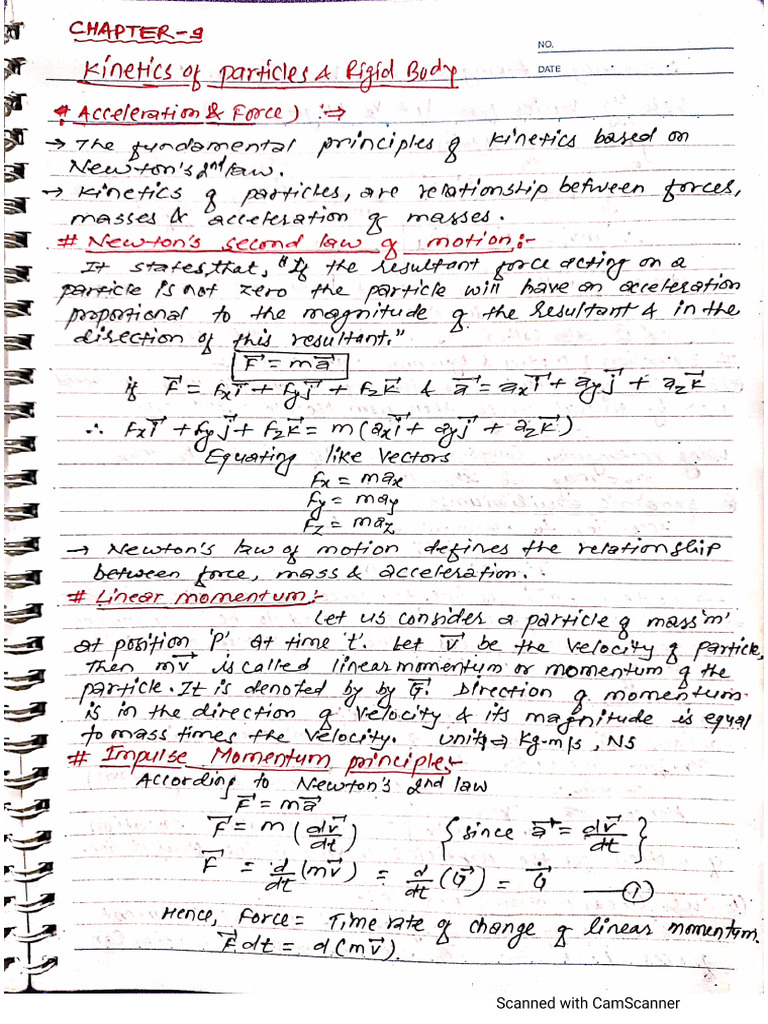 CHAPTER-9
NO.
Kinetics of particles & Rigid Body
DATE
# Acceleration & Force) :⇒
→ The fundamental principles of kinetics based on
Newton's 2nd law.
→ Kinetics of particles, are relationship between forces,
masses & acceleration of masses.
# Newton's second law of motion:-
It states that, "If the resultant force acting on a
particle is not zero the particle will have an acceleration
proportional to the magnitude of the resultant & in the
direction of this resultant."
F⃗ = ma⃗
if F⃗ = Fxi⃗ + Fyj⃗ + Fzk⃗ & a⃗ = axi⃗ + ayj⃗ + azk⃗
∴ Fxi⃗ + Fyj⃗ + Fzk⃗ = m(axi⃗ + ayj⃗ + azk⃗)
Equating like vectors
Fx = max
Fy = may
Fz = maz
→ Newton's law of motion defines the relationship
between force, mass & acceleration.
# Linear momentum:-
Let us consider a particle of mass 'm'
at position 'P' at time 't'. Let v⃗ be the velocity of particle,
then mv⃗ is called linear momentum or momentum of the
particle. It is denoted by by G⃗. Direction of momentum
is in the direction of velocity & its magnitude is equal
to mass times the velocity. unit ⇒ kg-m/s, NS
# Impulse Momentum principle:-
According to Newton's 2nd law
F⃗ = ma⃗
F⃗ = m (dv⃗/dt) {since a⃗ = dv⃗/dt}
F⃗ = d/dt (mv⃗) = d/dt (G⃗) = G⃗̇ —— ①
Hence, Force = Time rate of change of linear momentum.
F⃗dt = d(mv⃗)
Scanned with CamScanner